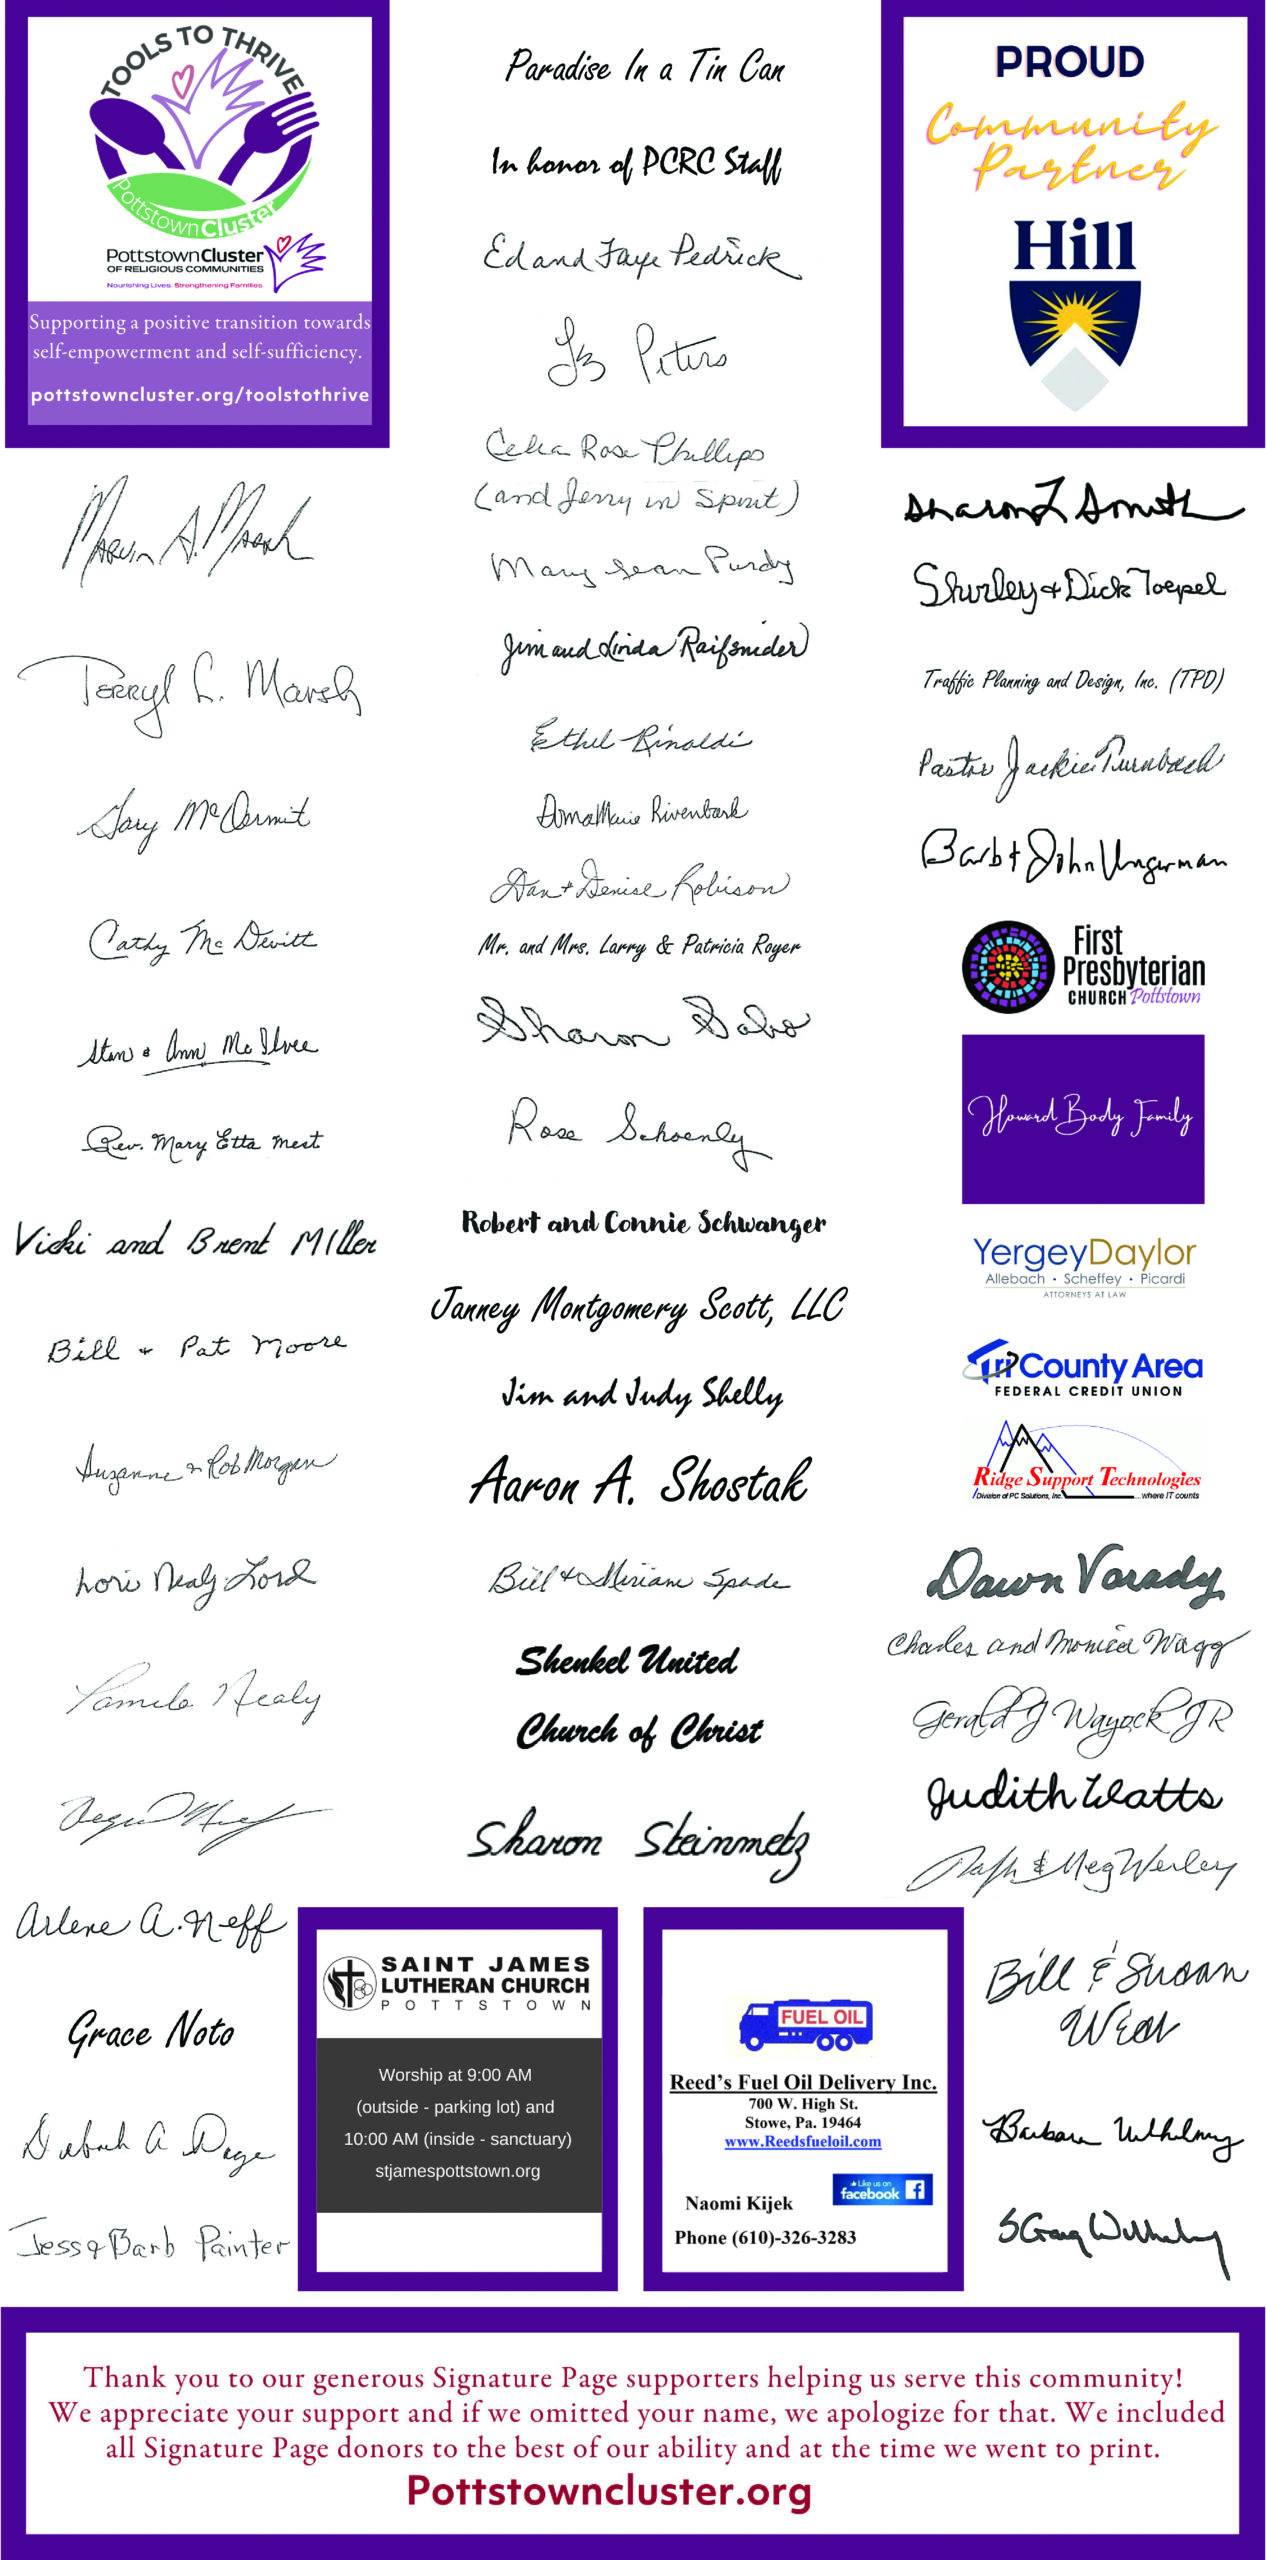 TOOLS TO THRIVE
PottstownCluster
PottstownCluster
OF RELIGIOUS COMMUNITIES
Nourishing Lives. Strengthening Families.
Supporting a positive transition towards
self-empowerment and self-sufficiency.
pottstowncluster.org/toolstothrive
Marvin A. Marsh
Terryl L. Marsh
Gary McDermit
Cathy McDevitt
Stan & Ann McIlvee
Rev. Mary Etta Mest
Vicki and Brent Miller
Bill + Pat Moore
Suzanne & Rob Morgan
Lori Nealy-Lord
Pamela Nealy
Arlene A. Neff
Grace Noto
Deborah A Page
Jess & Barb Painter
Paradise In a Tin Can
In honor of PCRC Staff
Ed and Faye Pedrick
Peters
Celia Rose Phillips
(and Jerry in Spirit)
Mary Jean Purdy
Jim and Linda Raifsnider
Ethel Rinaldi
Rivenbark
Dan + Denise Robison
Mr. and Mrs. Larry & Patricia Royer
Sharon Sabo
Rose Schoenly
Robert and Connie Schwanger
Janney Montgomery Scott, LLC
Jim and Judy Shelly
Aaron A. Shostak
Bill + Miriam Spade
Shenkel United
Church of Christ
Sharon Steinmetz
PROUD
Community
Partner
Hill
Sharon L Smith
Shirley + Dick Toepel
Traffic Planning and Design, Inc. (TPD)
Pastor Jackie Turnbach
Barb + John Ungerman
First
Presbyterian
CHURCH Pottstown
Howard Body Family
YergeyDaylor
Allebach • Scheffey • Picardi
ATTORNEYS AT LAW
TriCounty Area
FEDERAL CREDIT UNION
Ridge Support Technologies
Division of PC Solutions, Inc. ...where IT counts
Dawn Varady
Charles and Monica Wagg
Gerald J Wayock JR
Judith Watts
& Meg Werley
Bill & Susan
West
Barbara Wilhelmy
S Craig Wilhelmy
SAINT JAMES
LUTHERAN CHURCH
POTTSTOWN
Worship at 9:00 AM
(outside - parking lot) and
10:00 AM (inside - sanctuary)
stjamespottstown.org
FUEL OIL
Reed's Fuel Oil Delivery Inc.
700 W. High St.
Stowe, Pa. 19464
www.Reedsfueloil.com
Like us on
facebook
Naomi Kijek
Phone (610)-326-3283
Thank you to our generous Signature Page supporters helping us serve this community!
We appreciate your support and if we omitted your name, we apologize for that. We included
all Signature Page donors to the best of our ability and at the time we went to print.
Pottstowncluster.org